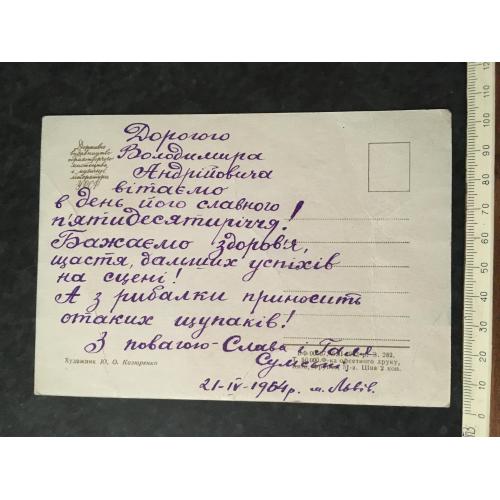 Державне
видавництво
образотворчого
мистецтва
і музичної
літератури
УРСР
Дорогого
Володимира
Андрійовича
вітаємо
в день його славного
п'ятидесятиріччя!
Бажаємо здоров'я,
щастя, дальших успіхів
на сцені!
А з рибалки приносить
отаких щупаків!
З повагою - Слава і Галя
21-IV-1964р. м. Львів.
Художник Ю. О. Козюренко
З. 282.
офсетного друку,
Ціна 2 коп.